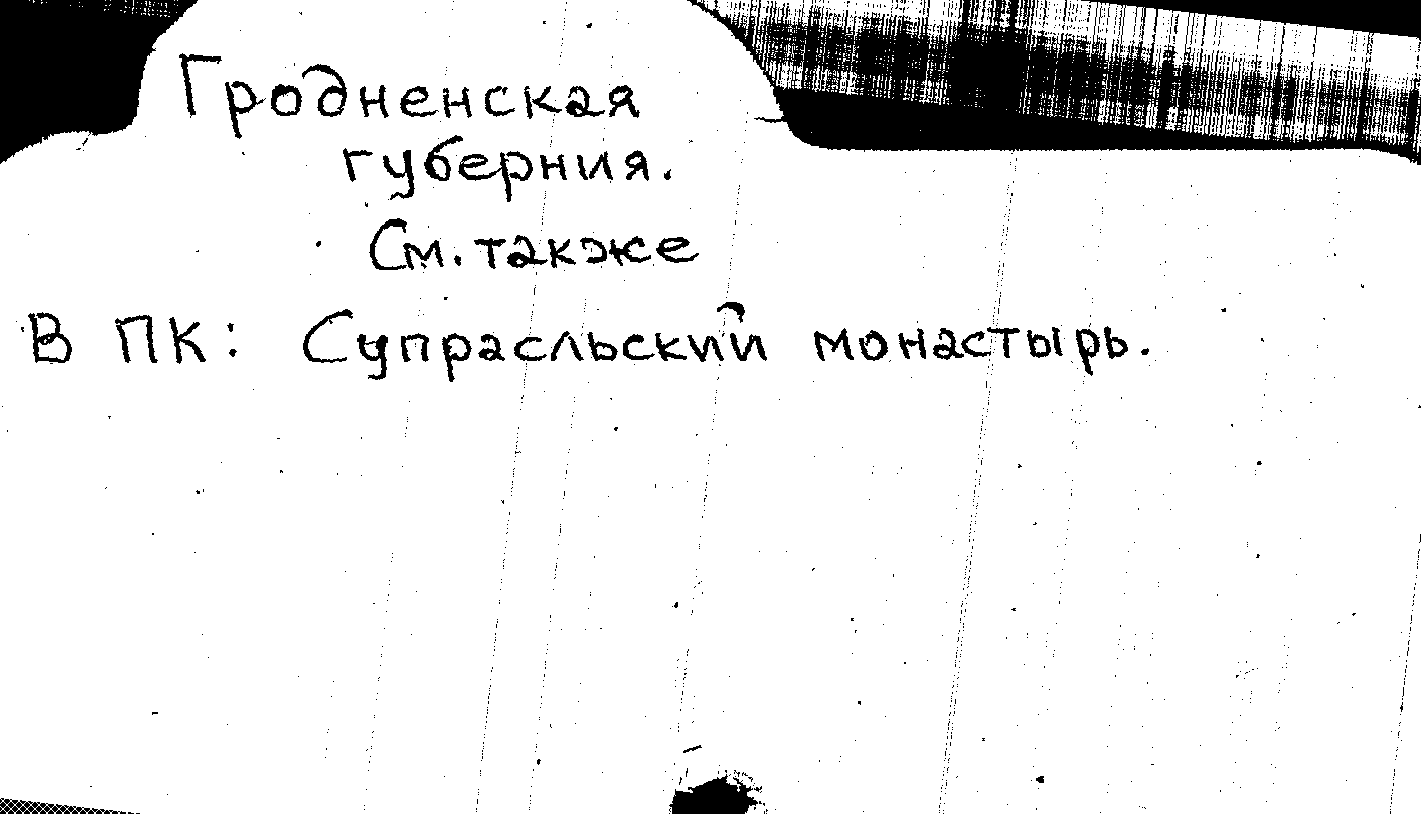 Гродненская
губерния.
См. также
В ПК: Супрасльский монастырь.